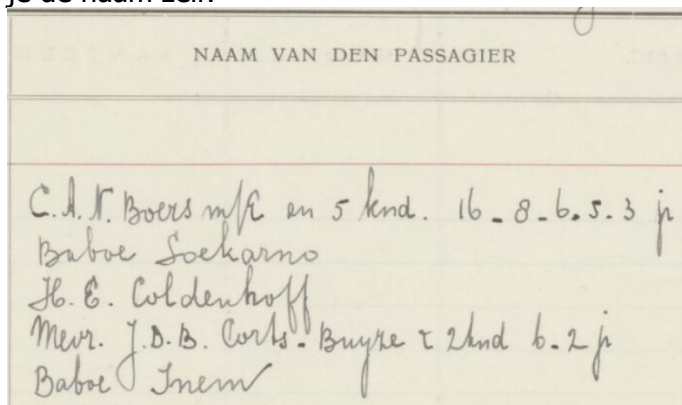 je de naam zelf.
NAAM VAN DEN PASSAGIER
C. A. N. Boers m/E en 5 knd. 16 - 8 - 6. 5. 3 jr
Baboe Soekarno
H. E. Coldenhoff
Mevr. J. D. B. Corts - Buyze & 2 knd 6 - 2 jr
Baboe Inem